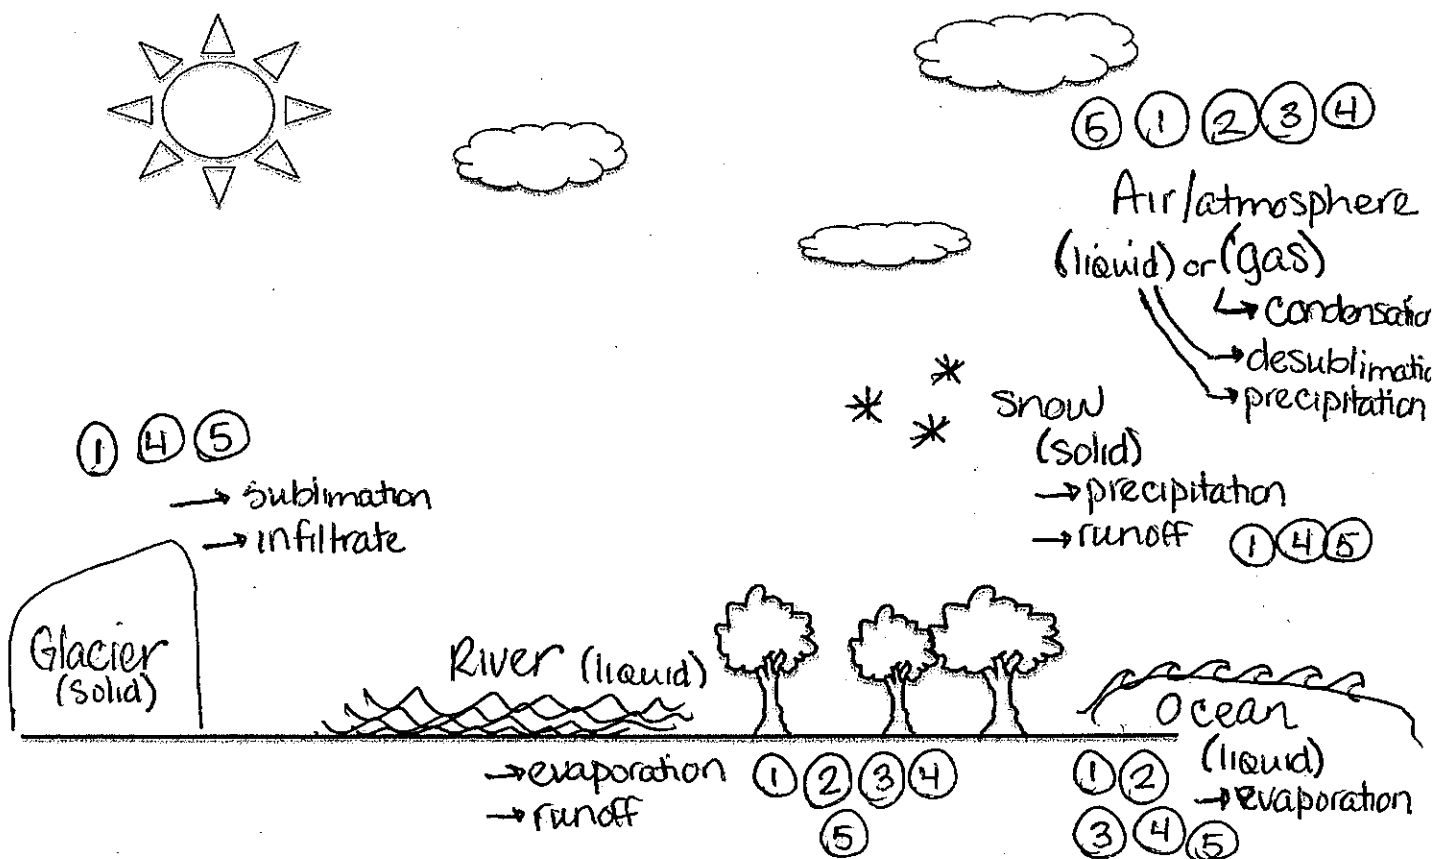 ⑤ ① ② ③ ④
Air/atmosphere
(liquid) or (gas)
↳ condensatio
→ desublimatic
→ precipitation
snow
(solid)
→ precipitation
→ runoff ① ④ ⑤
① ④ ⑤
→ sublimation
→ infiltrate
Glacier
(solid)
River (liquid)
→ evaporation ① ② ③ ④
→ runoff ⑤
Ocean
(liquid)
→ evaporation
① ②
③ ④ ⑤